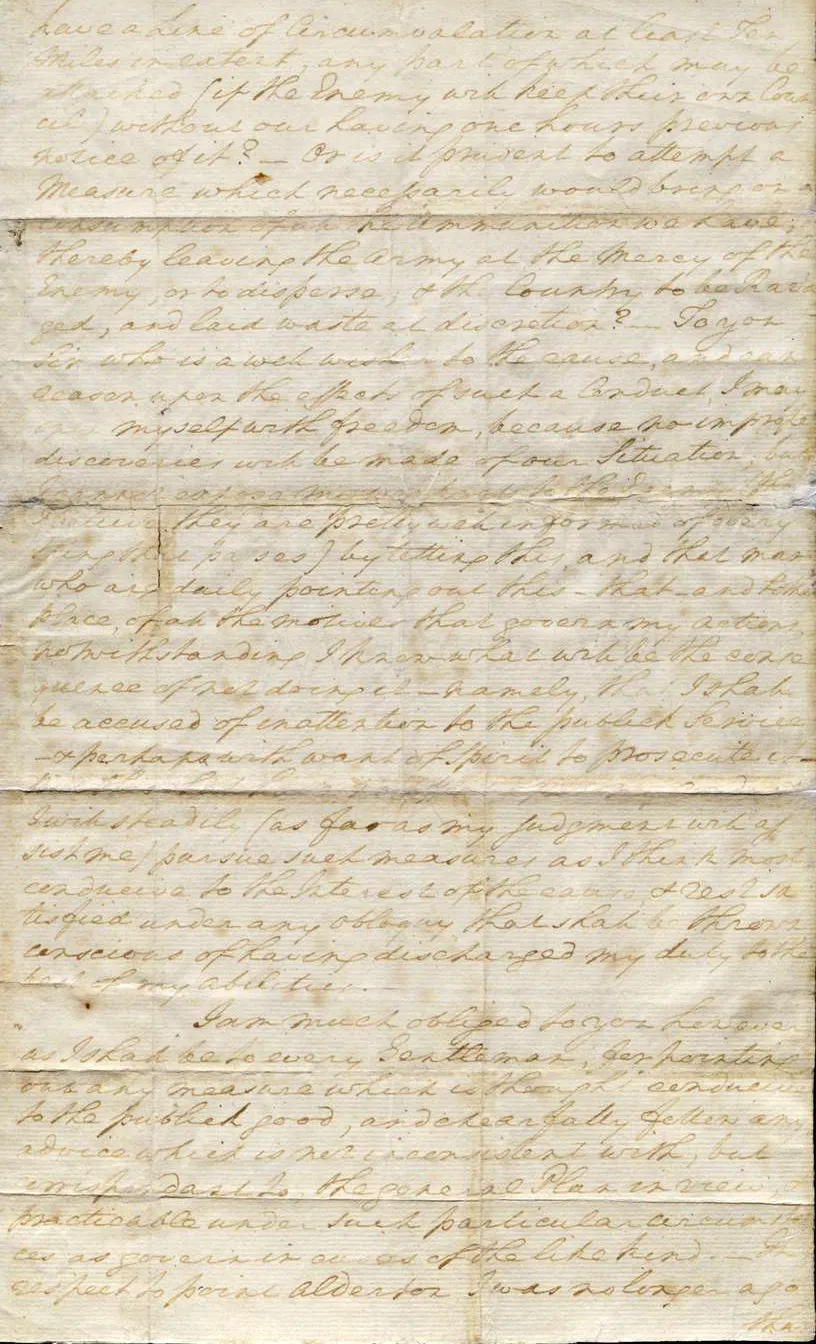 have a Line of Circumvalation at least Ten
Miles in extent, any part of which may be
attacked (if the Enemy will keep their own Coun
cil) without our having one hours previous
notice of it? — Or is it prudent to attempt a
Measure which necessarily would bring on a
consumption of all the Ammunition we have;
thereby leaving the Army at the Mercy of the
Enemy, or to disperse; & the Country to be Rava
ged, and laid waste at discretion? — To you
Sir who is a well wisher to the cause, and can
reason upon the effects of such a Conduct, I may
open myself with freedom, because no improper
discoveries will be made of our Situation; but
I cannot expose my weakness to the Enemy (tho
I believe they are pretty well informed of every
thing that passes) by telling this, and that man
who are daily pointing out this – that – and t'other
place, of all the motives that govern my actions,
notwithstanding I know what will be the conse
quence of not doing it – namely, that I shall
be accused of inattention to the publick Service
– & perhaps with want of Spirit to prosecute it –
I will steadily (as far as my judgment will as
sist me) pursue such measures as I think most
conducive to the Interest of the cause, & rest sa
tisfied under any obloquy that shall be thrown
conscious of having discharged my duty to the
best of my abilities. —
I am much obliged to you however
as I shall be to every Gentleman, for pointing
out any measure which is thought conducive
to the publick good, and chearfully follow any
advice which is not inconsistent with, but
corrispondant to, the general Plan in view, &
practicable under such particular circumstan
ces as govern in cases of the like kind. — In
respect to point Alderton I was no longer ago
than